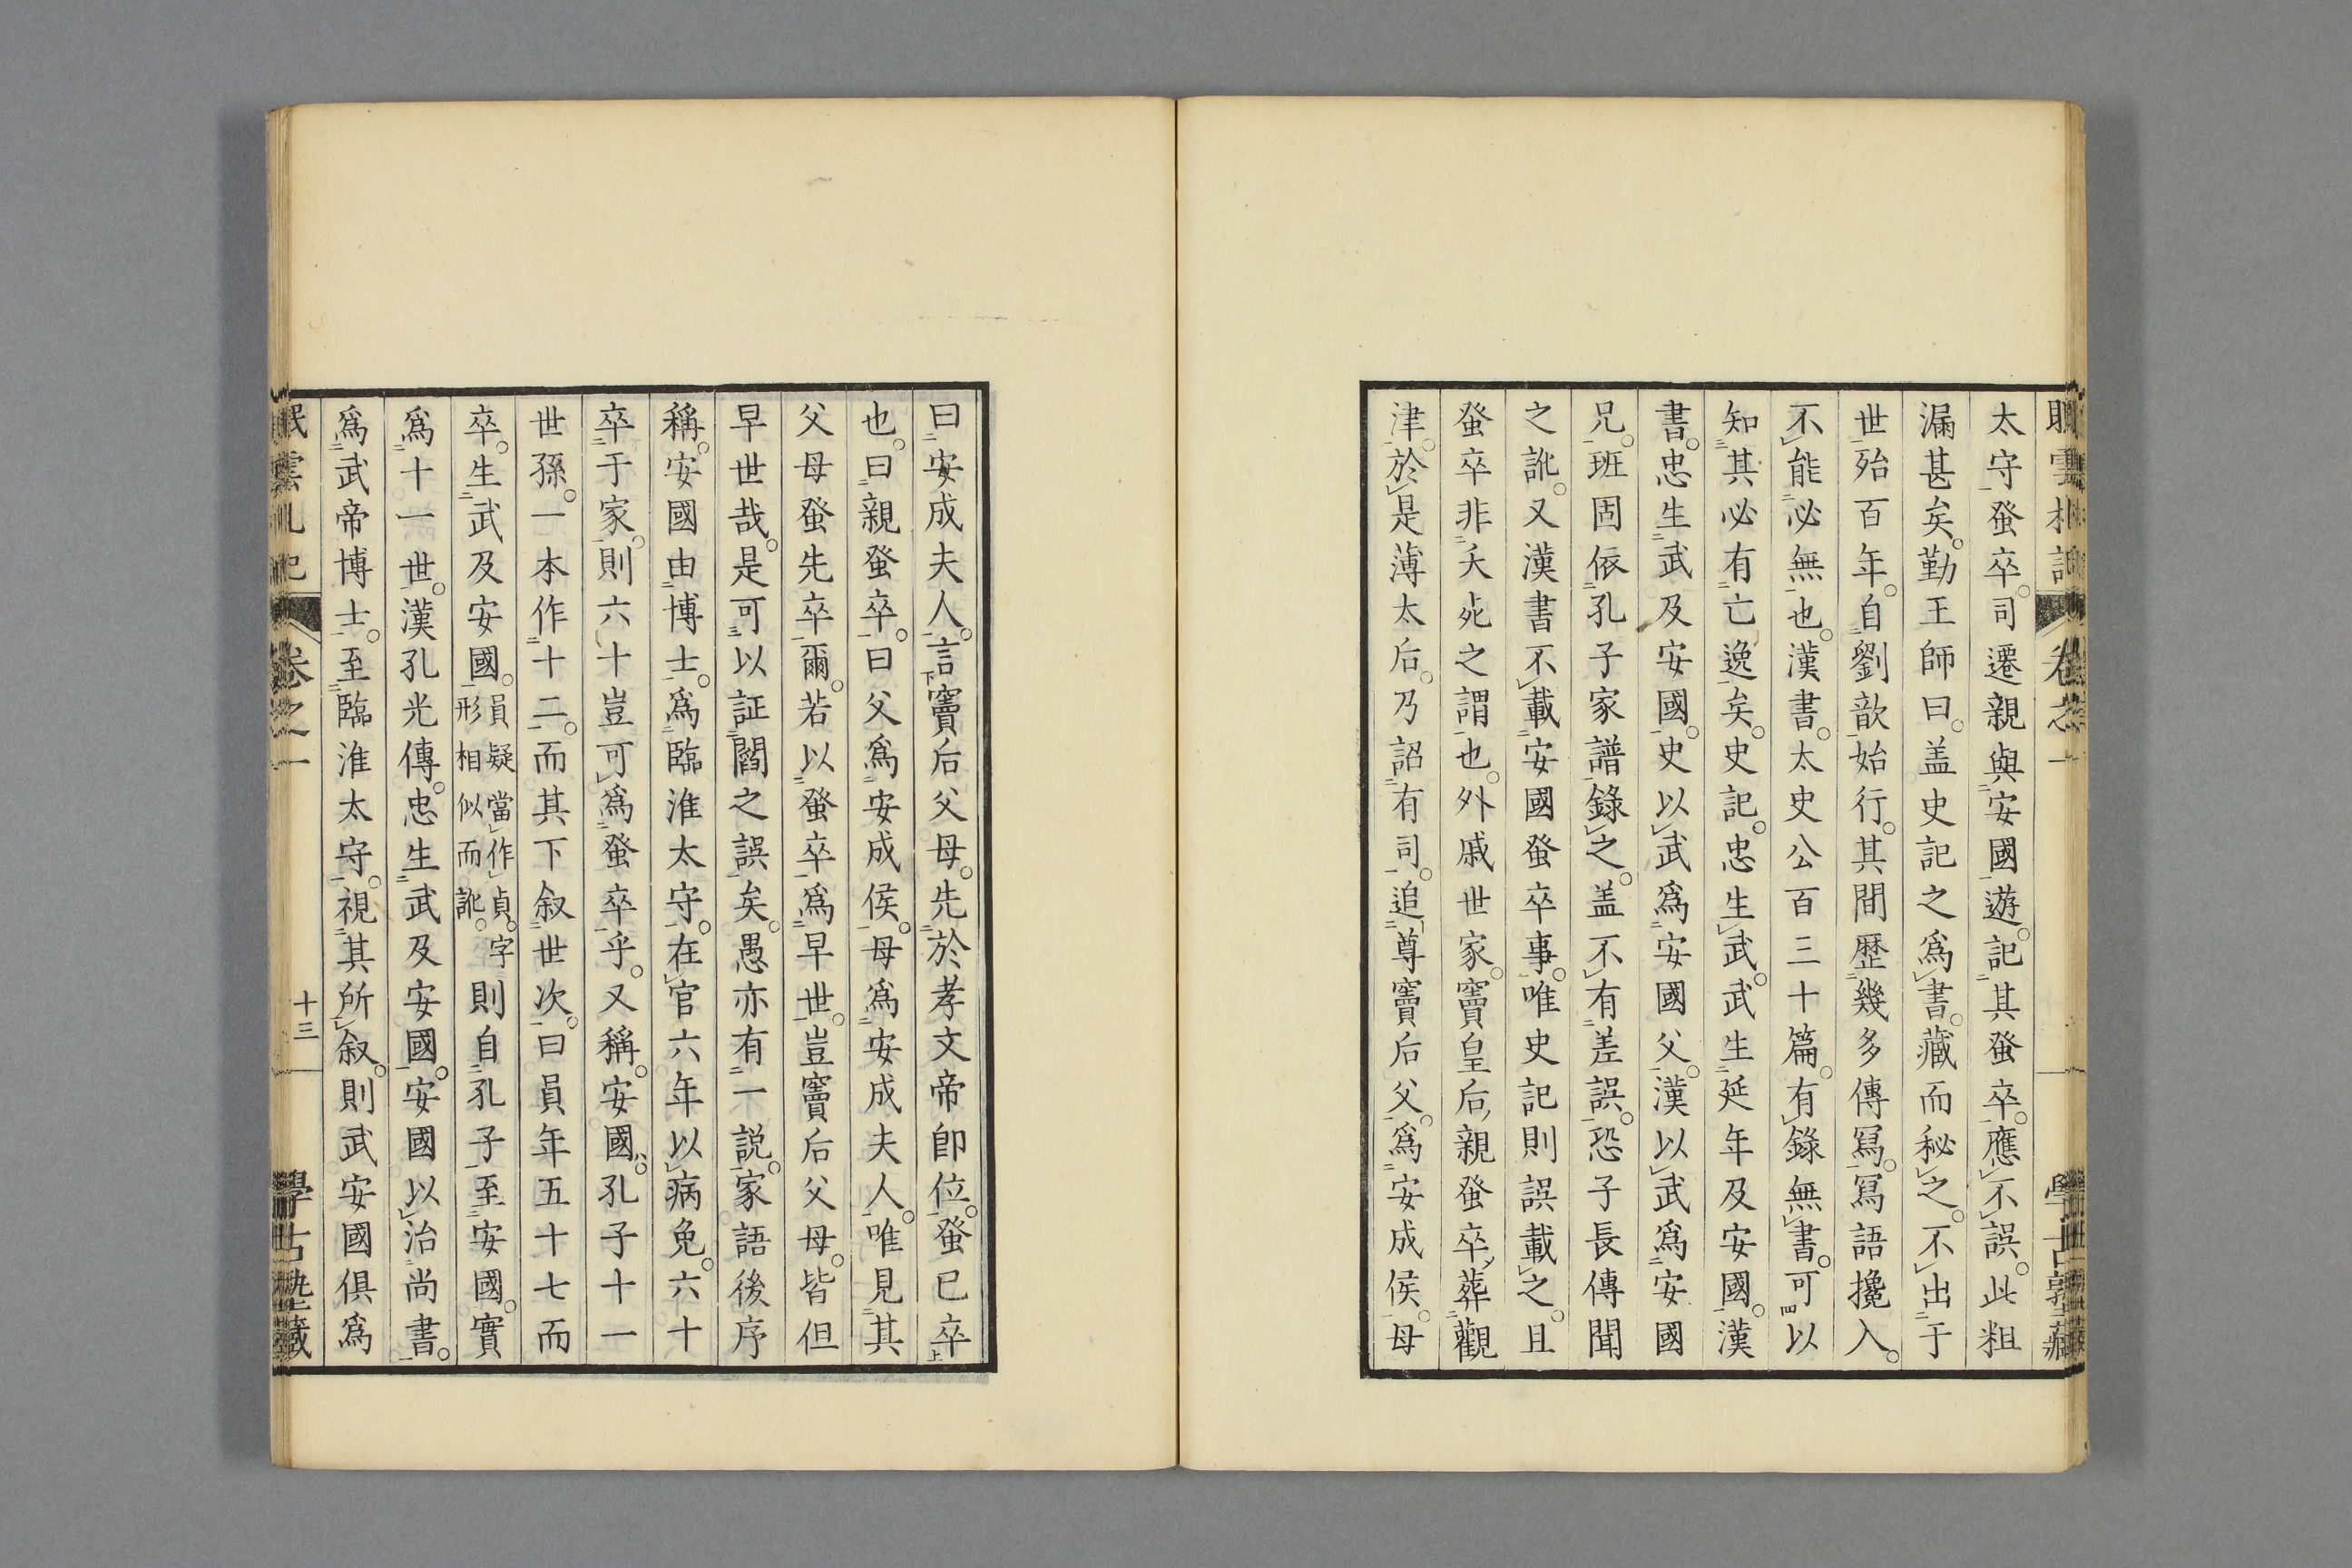 太守蚤卒。司遷親與安國遊。記其蚤卒。應不誤。此粗
漏甚矣。勤王師曰。盖史記之爲書。藏而秘之。不出于
世殆百年。自劉歆始行。其間歷幾多傳寫。寫語攙入。
不能必無也。漢書。太史公百三十篇。有錄無書。可以
知其必有亡逸矣。史記。忠生武。武生延年及安國。漢
書。忠生武及安國。史以武爲安國父。漢以武爲安國
兄。班固依孔子家譜錄之。盖不有差誤。恐子長傳聞
之訛。又漢書不載安國蚤卒事。唯史記則誤載之。且
蚤卒非夭死之謂也。外戚世家。竇皇后親蚤卒葬觀
津。於是薄太后。乃詔有司。追尊竇后父。爲安成侯。母
曰安成夫人。言竇后父母。先於孝文帝卽位。蚤已卒
也。曰親蚤卒。曰父爲安成侯。母爲安成夫人。唯見其
父母蚤先卒爾。若以蚤卒爲早世。豈竇后父母。皆但
早世哉。是可以証閻之誤矣。愚亦有一説。家語後序
稱。安國由博士。爲臨淮太守。在官六年以病免。六十
卒于家。則六十豈可爲蚤卒乎。又稱。安國。孔子十一
世孫。一本作十二。而其下叙世次。曰員年五十七而
卒。生武及安國。員疑當作貞。字形相似而訛。則自孔子至安國。實
爲十一世。漢孔光傳。忠生武及安國。安國以治尚書。
爲武帝博士。至臨淮太守。視其所叙。則武安國俱爲
卷之一
十三